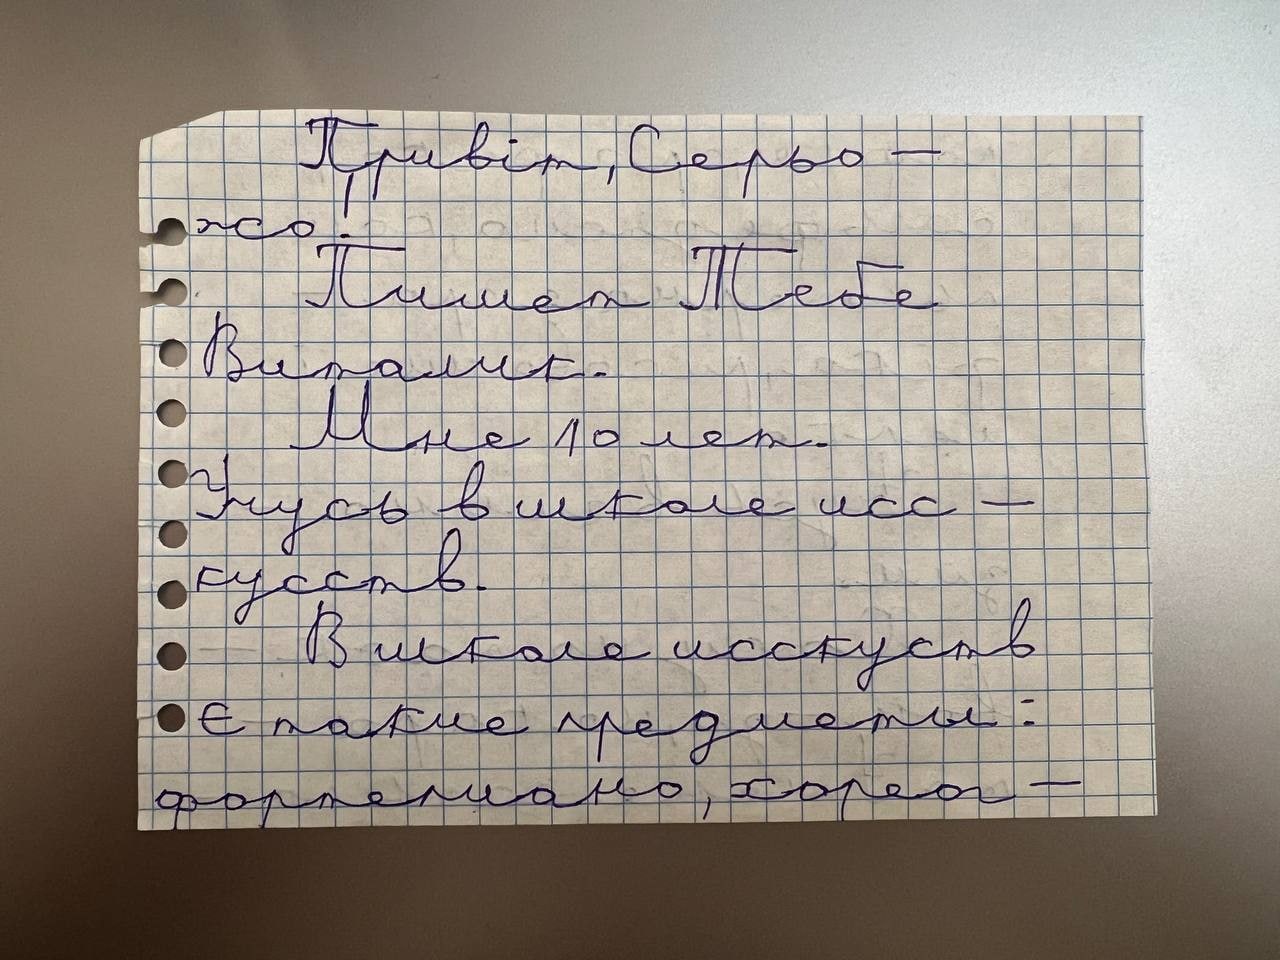 Привіт, Серьо-
жо!
Пишет Тебе
Виталик.
Мне 10 лет.
Учусь в школе исс-
кусств.
В школе исскуств
є такие предметы:
фортепиано, хореог-